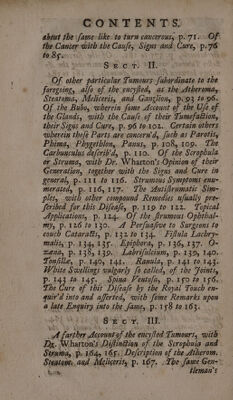 CONTENTS.
about the same like to turn cancerous, p. 71. Of
the Cancer with the Cause, Signs and Cure, p.76
to 85.
SECT. II.
Of other particular Tumours subordinate to the
foregoing, also of the encysted, as the Atheroma,
Steatoma, Meliceris, and Ganglion, p.93 to 96.
Of the Bubo, wherein some Account of the Use of
the Glands, with the Cause of their Tumefaction,
their Signs and Cure, p. 96 to 102. Certain others
wherein these Parts are concern'd, such as Parotis,
Phima, Phygethlon, Panus, p. 108, 109. The
Carbunculus describ'd, p. 110. Of the Scrophula
or Struma, with Dr. Wharton's Opinion of their
Generation, together with the Signs and Cure in
general, p. 111 to 116. Strumous Symptoms enu-
merated, p. 116, 117. The Antistrumatic Sim-
ples, with other compound Remedies usually pre-
scribed for this Disease, p. 119 to 122. Topical
Applications, p. 124. Of the strumous Ophthal-
my, p. 126 to 130. A Persuasive to Surgeons to
couch Cataracts, p. 132 to 134. Fistula Lachry-
malis, p. 134, 135. Epiphora, p. 136, 137. O-
zæna, p. 138, 139. Labrisulcium, p. 139, 140.
Tonsillæ, p. 140, 141. Ranula, p. 141 to 143.
White Swellings vulgarly so called, of the Joints,
p. 143 to 145. Spina Ventosa, p. 150 to 156.
The Cure of this Disease by the Royal Touch en-
quir'd into and asserted, with some Remarks upon
a late Enquiry into the same, p. 158 to 163.
SECT. III.
A farther Account of the encysted Tumours, with
Dr. Wharton's Distinction of the Scrophula and
Struma, p. 164, 165. Description of the Atherom.
Steatom. and Meliceris, p. 167. The same Gen-
tleman's